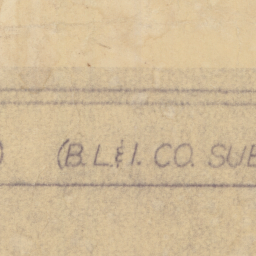 ) (B. L. & I. CO. SUB